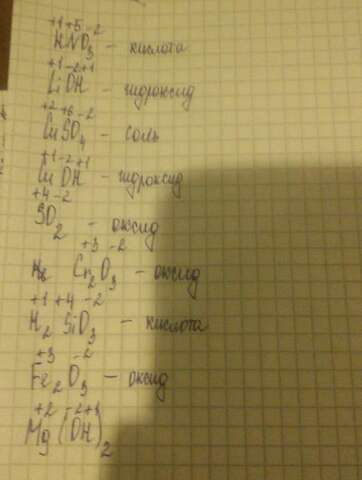 +1 +5 -2
HNO3 - кислота
+1 -2 +1
LiOH - гидроксид
+2 +6 -2
CuSO4 - соль
+1 -2 +1
CuOH - гидроксид
+4 -2
SO2 - оксид
+3 -2
Cr2O3 - оксид
+1 +4 -2
H2SiO3 - кислота
+3 -2
Fe2O3 - оксид
+2 -2 +1
Mg(OH)2